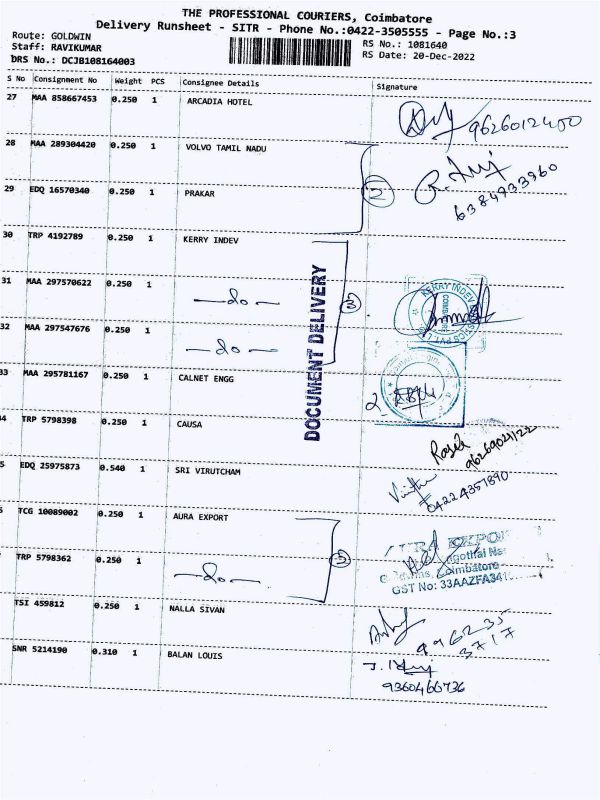 THE PROFESSIONAL COURIERS, Coimbatore
Delivery Runsheet - SITR - Phone No.:0422-3505555 - Page No.:3
Route: GOLDWIN
Staff: RAVIKUMAR
DRS No.: DCJB108164003
RS No.: 1081640
RS Date: 20-Dec-2022
S No Consignment No Weight PCS Consignee Details Signature
27 MAA 858667453 0.250 1 ARCADIA HOTEL
9626012400
28 MAA 289304420 0.250 1 VOLVO TAMIL NADU
29 EDQ 16570340 0.250 1 PRAKAR
2
6384933960
30 TRP 4192789 0.250 1 KERRY INDEV
31 MAA 297570622 0.250 1 —do—
3
32 MAA 297547676 0.250 1 —do—
DOCUMENT DELIVERY
KERRY INDEV
33 MAA 295781167 0.250 1 CALNET ENGG
4 TRP 5798398 0.250 1 CAUSA
5 EDQ 25975873 0.540 1 SRI VIRUTCHAM
04224351890
6 TCG 10089002 0.250 1 AURA EXPORT
TRP 5798362 0.250 1 —do—
2
Coimbatore
GST No: 33AAZFA341
TSI 459812 0.250 1 NALLA SIVAN
996235
3717
SNR 5214190 0.310 1 BALAN LOUIS
9360466736